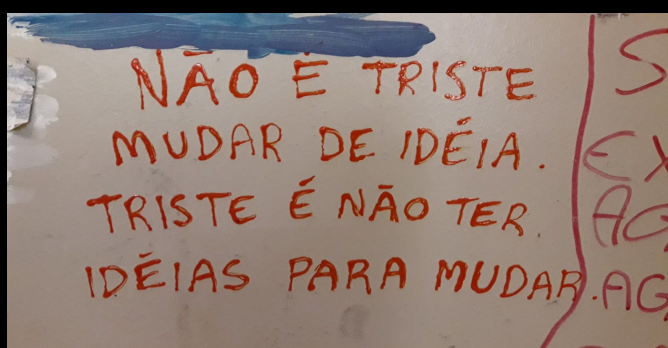 NÃO É TRISTE
MUDAR DE IDÉIA.
TRISTE É NÃO TER
IDÉIAS PARA MUDAR.